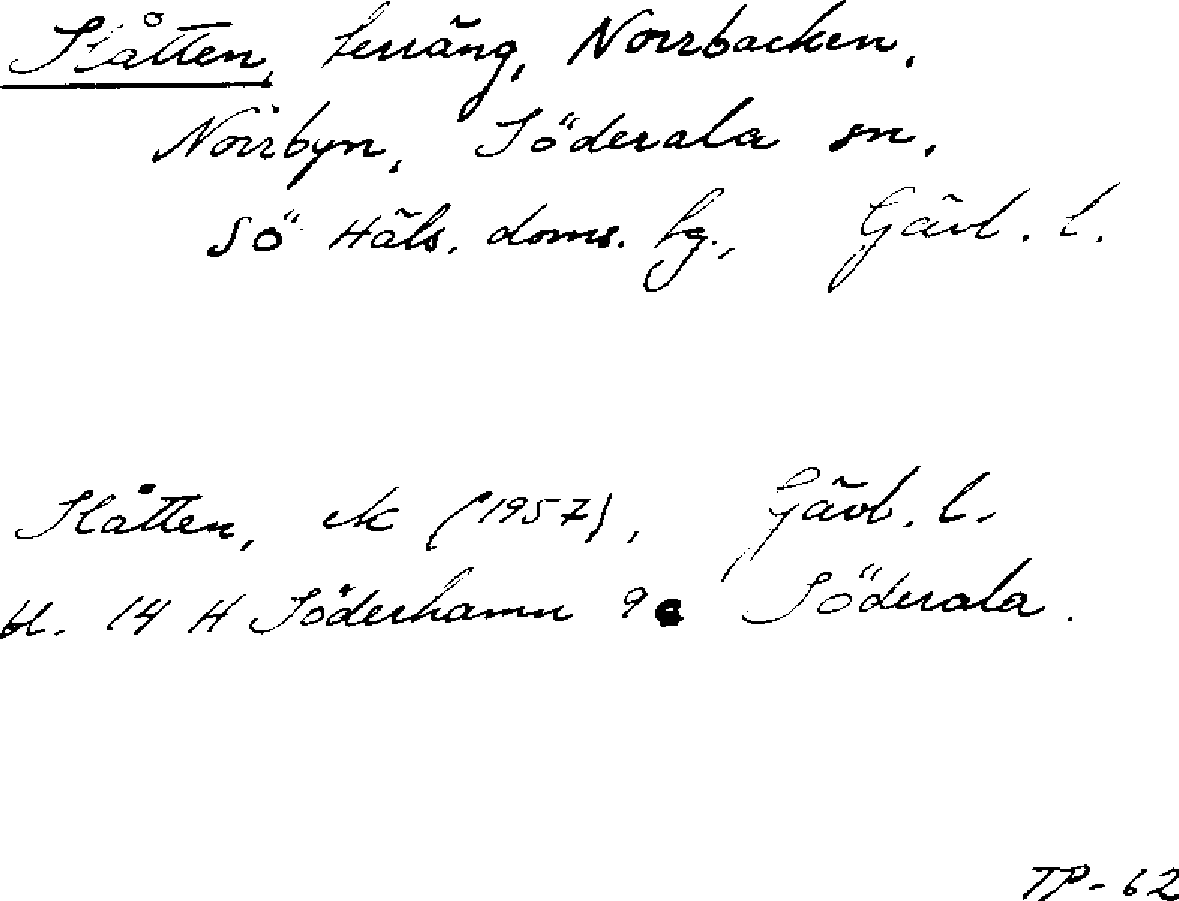 Slåtten, terräng, Norrbacken,
Norrbyn, Söderala sn,
Sö Häls. doms. hg., Gävl. l.
Slåtten, ek (1957), Gävl. l.
bl. 14 H Söderhamn 9c Söderala.
TP-62